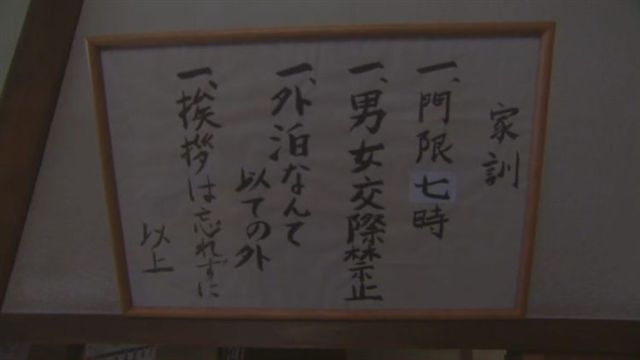 家訓
一、門限七時
一、男女交際禁止
一、外泊なんて
以ての外
一、挨拶は忘れずに
以上